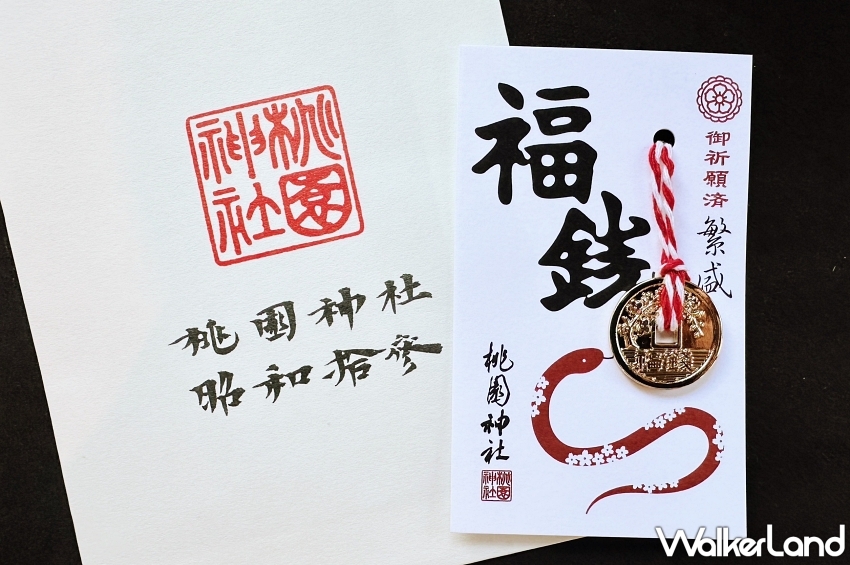 桃園神社
桃園神社
昭和拾參
福銭
御祈願済
繁盛
桃園神社
桃園神社
WalkerLand